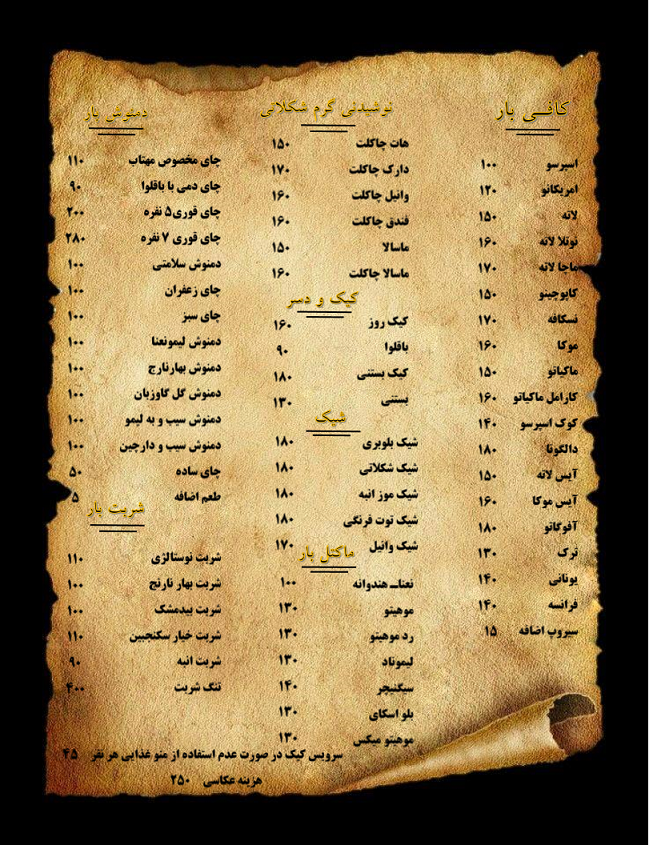 کافی بار
اسپرسو ۱۰۰
امریکانو ۱۲۰
لاته ۱۵۰
نوتلا لاته ۱۶۰
ماچا لاته ۱۷۰
کاپوچینو ۱۵۰
نسکافه ۱۷۰
موکا ۱۶۰
ماکیاتو ۱۵۰
کارامل ماکیاتو ۱۶۰
کوک اسپرسو ۱۴۰
دالگونا ۱۸۰
آیس لاته ۱۵۰
آیس موکا ۱۶۰
آفوگاتو ۱۸۰
ترک ۱۳۰
یونانی ۱۴۰
فرانسه ۱۴۰
سیروپ اضافه ۱۵
نوشیدنی گرم شکلاتی
هات چاکلت ۱۵۰
دارک چاکلت ۱۷۰
وانیل چاکلت ۱۶۰
فندق چاکلت ۱۶۰
ماسالا ۱۵۰
ماسالا چاکلت ۱۶۰
کیک و دسر
کیک روز ۱۶۰
باقلوا ۹۰
کیک بستنی ۱۸۰
بستنی ۱۳۰
شیک
شیک بلوبری ۱۸۰
شیک شکلاتی ۱۸۰
شیک موز انبه ۱۸۰
شیک توت فرنگی ۱۸۰
شیک وانیل ۱۷۰
ماکتل بار
نعناـهندوانه ۱۰۰
موهیتو ۱۳۰
رد موهیتو ۱۳۰
لیموناد ۱۳۰
سیگنیچر ۱۴۰
بلو اسکای ۱۳۰
موهیتو میکس ۱۳۰
دمنوش بار
چای مخصوص مهتاب ۱۱۰
چای دمی با باقلوا ۹۰
چای قوری۵ نفره ۲۰۰
چای قوری ۷ نفره ۲۸۰
دمنوش سلامتی ۱۰۰
چای زعفران ۱۰۰
چای سبز ۱۰۰
دمنوش لیمونعنا ۱۰۰
دمنوش بهارنارج ۱۰۰
دمنوش گل گاوزبان ۱۰۰
دمنوش سیب و به لیمو ۱۰۰
دمنوش سیب و دارچین ۱۰۰
چای ساده ۵۰
طعم اضافه ۵
شربت بار
شربت نوستالژی ۱۱۰
شربت بهار نارنج ۱۰۰
شربت بیدمشک ۱۰۰
شربت خیار سکنجبین ۱۱۰
شربت انبه ۹۰
تنگ شربت ۴۰۰
سرویس کیک در صورت عدم استفاده از منو غذایی هر نفر ۴۵
هزینه عکاسی ۲۵۰